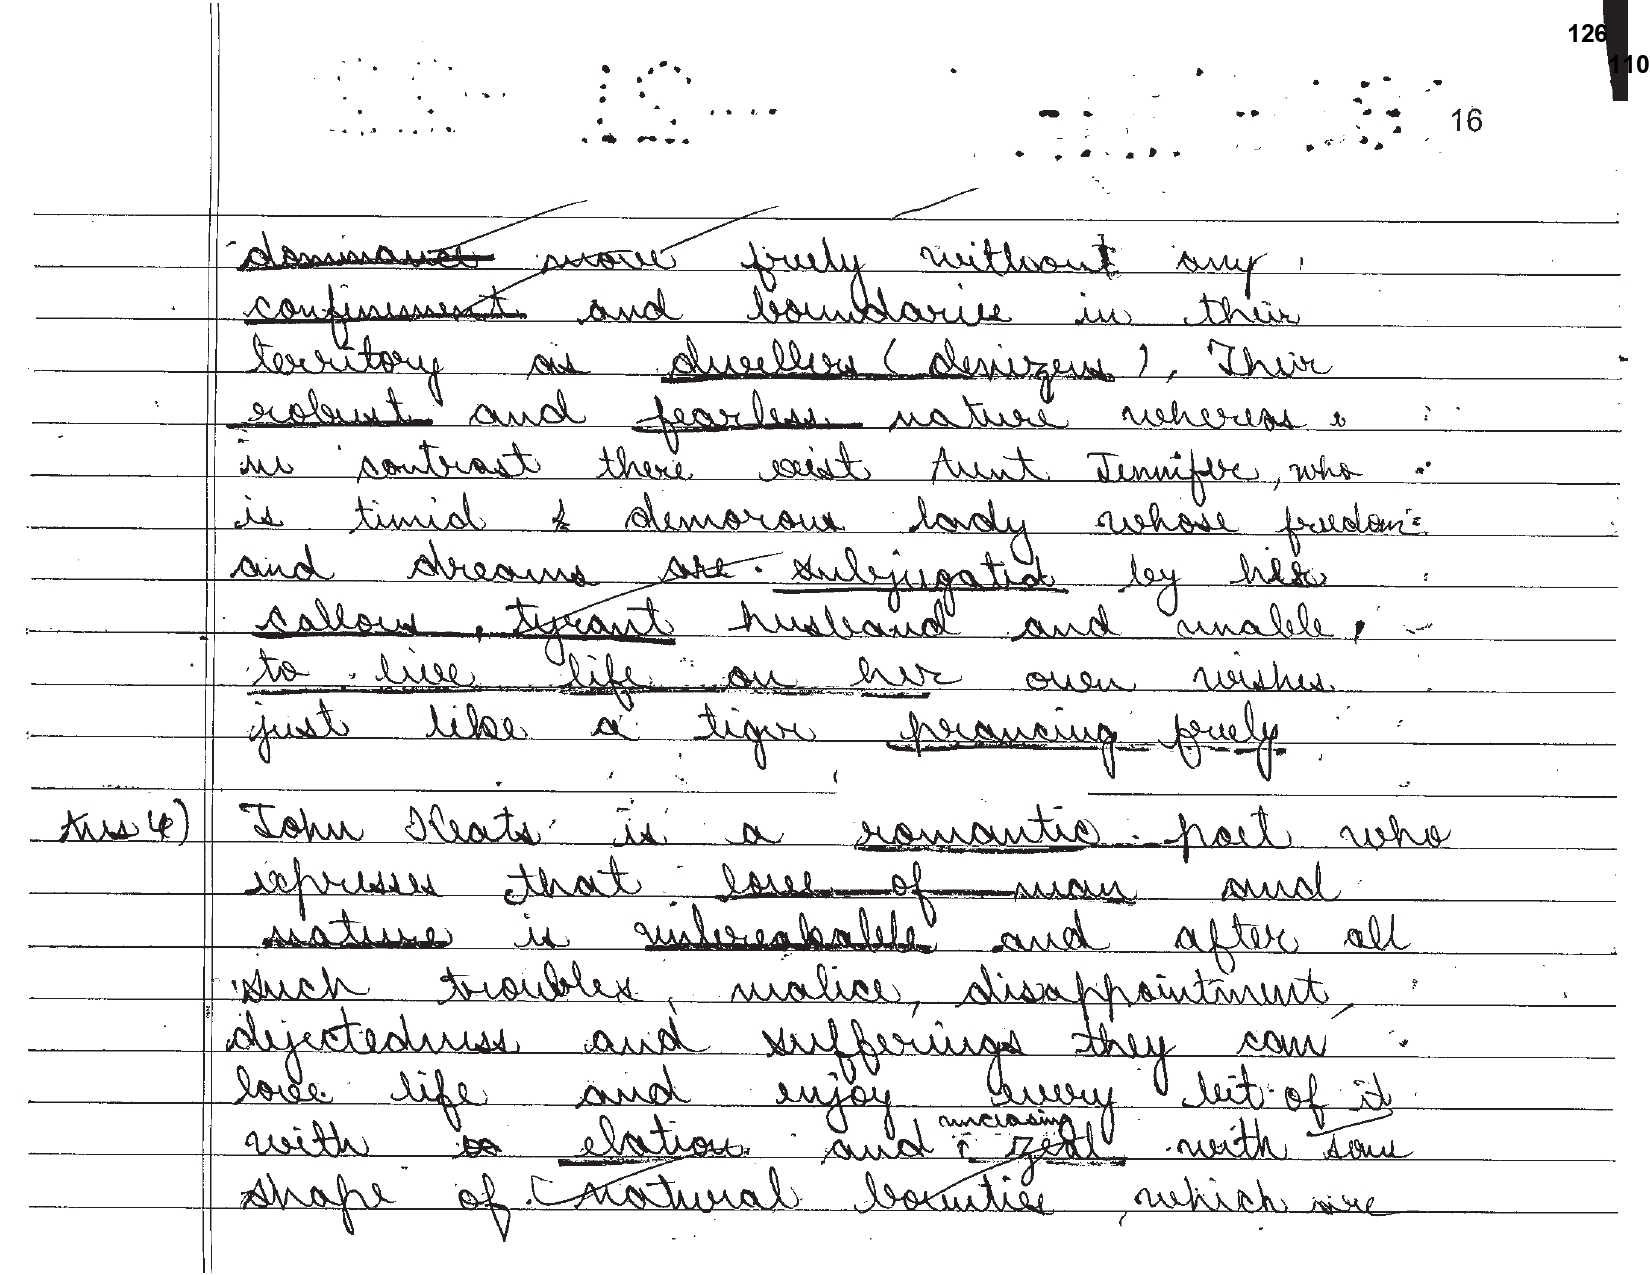 126
110
16
dominance move freely without any
confinement and boundaries in their
territory as dwellers (denizens). Their
robust and fearless nature whereas
in contrast there exist Aunt Jennifer, who
is timid & demorous lady whose freedom
and dreams are subjugated by her
callous, tyrant husband and unable,
to live life on her own wishes
just like a tiger prancing freely
Ans 4) John Keats is a romantic poet who
expresses that love of man and
nature is unbreakable and after all
such troubles, malice, disappointment,
dejectedness and sufferings they can
love life and enjoy every bit of it
unceasing
with elation and zeal with some
shape of (natural bounties, which are